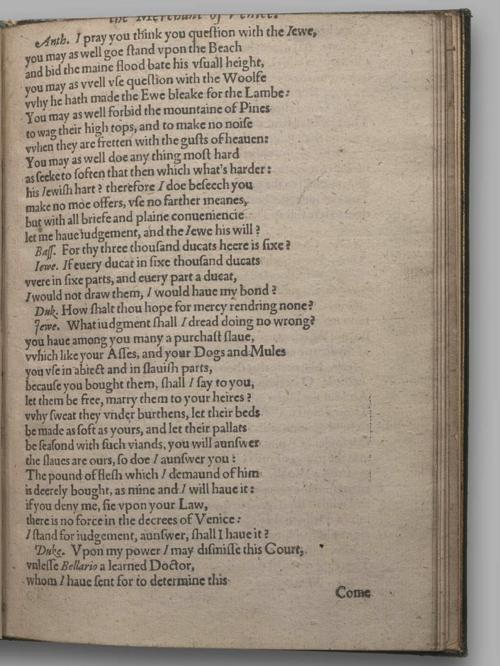 the Merchant of Venice.
Anth. I pray you think you queſtion with the Iewe,
you may as well goe ſtand vpon the Beach
and bid the maine flood bate his vſuall height,
you may as vvell vſe queſtion with the Woolfe
vvhy he hath made the Ewe bleake for the Lambe:
You may as well forbid the mountaine of Pines
to wag their high tops, and to make no noiſe
vvhen they are fretten with the guſts of heauen:
You may as well doe any thing moſt hard
as ſeeke to ſoften that then which what's harder:
his Iewiſh hart? therefore I doe beſeech you
make no moe offers, vſe no farther meanes,
but with all briefe and plaine conueniencie
let me haue iudgement, and the Iewe his will?
Baſſ. For thy three thouſand ducats heere is ſixe?
Iewe. If euery ducat in ſixe thouſand ducats
vvere in ſixe parts, and euery part a ducat,
I would not draw them, I would haue my bond?
Duk. How ſhalt thou hope for mercy rendring none?
Iewe. What iudgment ſhall I dread doing no wrong?
you haue among you many a purchaſt ſlaue,
vvhich like your Aſſes, and your Dogs and Mules
you vſe in abiect and in ſlauiſh parts,
becauſe you bought them, ſhall I ſay to you,
let them be free, marry them to your heires?
vvhy ſweat they vnder burthens, let their beds
be made as ſoft as yours, and let their pallats
be ſeaſond with ſuch viands, you will aunſwer
the ſlaues are ours, ſo doe I aunſwer you:
The pound of fleſh which I demaund of him
is deerely bought, as mine and I will haue it:
if you deny me, fie vpon your Law,
there is no force in the decrees of Venice:
I ſtand for iudgement, aunſwer, ſhall I haue it?
Duke. Vpon my power I may diſmiſſe this Court,
vnleſſe Bellario a learned Doctor,
whom I haue ſent for to determine this
Come